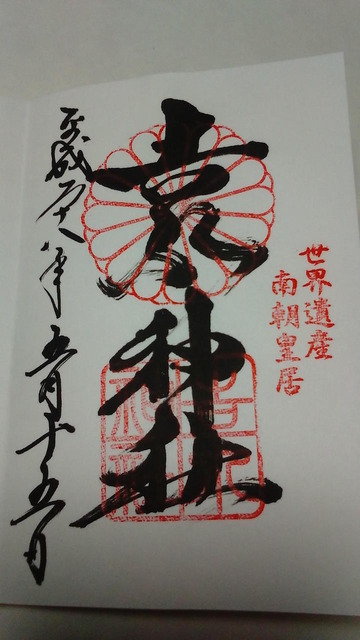 世界遺産
南朝皇居
吉水神社
吉水神社
平成廿八年五月十五日